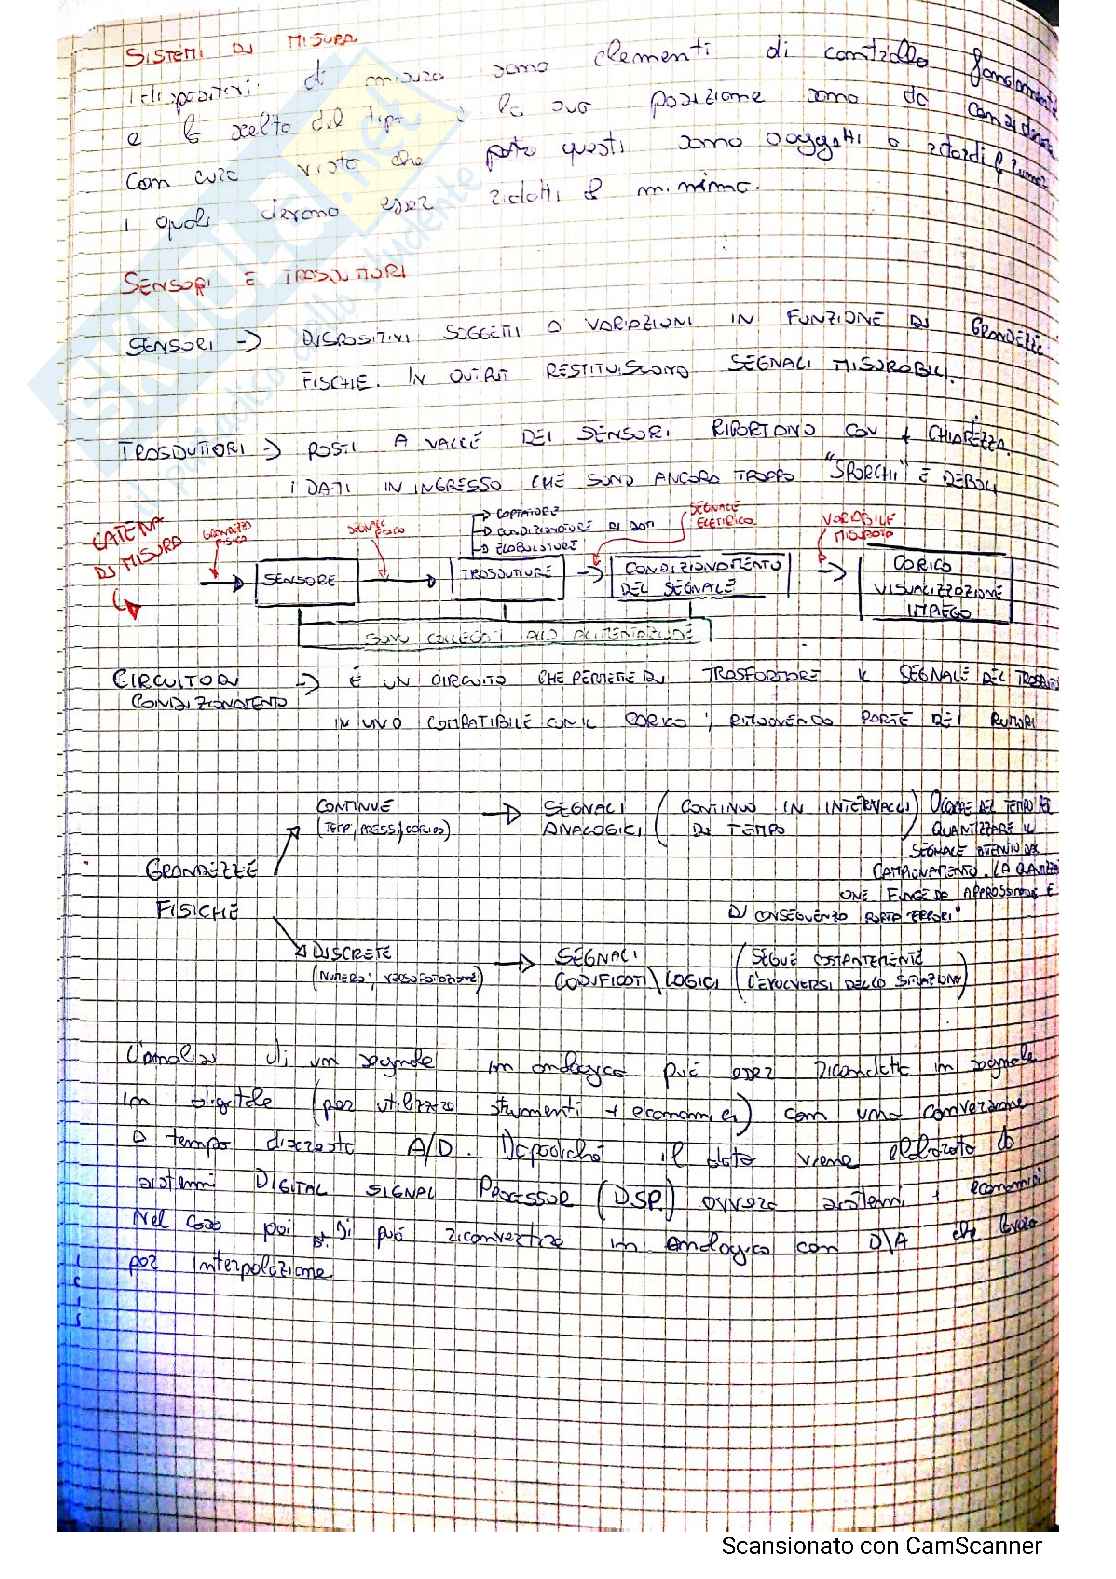 SISTEMI DI MISURA
I dispositivi di misura sono elementi di controllo fondamentali
e la scelta del tipo e la sua posizione sono da considerare
con cura visto che questi sono soggetti a ritardi e rumori
i quali devono esser ridotti al minimo.
SENSORI E TRASDUTTORI
SENSORI -> DISPOSITIVI SOGGETTI A VARIAZIONI IN FUNZIONE DI GRANDEZZE
FISICHE. IN OUTPUT RESTITUISCONO SEGNALI MISURABILI.
TRASDUTTORI -> POSTI A VALLE DEI SENSORI RIPORTANO CON + CHIAREZZA
I DATI IN INGRESSO CHE SONO ANCORA TROPPO "SPORCHI" E DEBOLI
CATENA DI MISURA
GRANDEZZA FISICA
SEGNALE FISICO
-> CAPTATORE
-> CONDIZIONATORE DI DATI
-> ELABORATORE
SEGNALE ELETTRICO
VARIABILE MISURATA
SENSORE
TRASDUTTORE
CONDIZIONAMENTO DEL SEGNALE
CARICO
VISUALIZZAZIONE
IMPIEGO
SONO COLLEGATI ALLA ALIMENTAZIONE
CIRCUITO DI CONDIZIONAMENTO -> È UN CIRCUITO CHE PERMETTE DI TRASFORMARE IL SEGNALE DEL
IN UNO COMPATIBILE CON IL CARICO, RIMUOVENDO PARTE DEI RUMORI
GRANDEZZE FISICHE
CONTINUE
(TEMP, PRESS, CARICO)
SEGNALI ANALOGICI
(CONTINUO IN INTERVALLI DI TEMPO)
QUANTIZZARE IL
SEGNALE
CAMPIONAMENTO. LA
APPROSSIMAZIONE E
DI CONSEGUENZA PORTA ERRORI
DISCRETE
(NUMERO, VERSO ROTAZIONE)
SEGNALI CODIFICATI \ LOGICI
(SEGUE COSTANTEMENTE L'EVOLVERSI DELLA SITUAZIONE)
L'analisi di un segnale in analogico può esser in segnale
in digitale (per utilizzare strumenti + economici) con una conversione
a tempo discreto A/D. Dopodiché il dato viene elaborato da
sistemi DIGITAL SIGNAL PROCESSOR (DSP) ovvero sistemi + economici
Nel caso poi si può riconvertire in analogico con D\A che
per interpolazione.
Scansionato con CamScanner